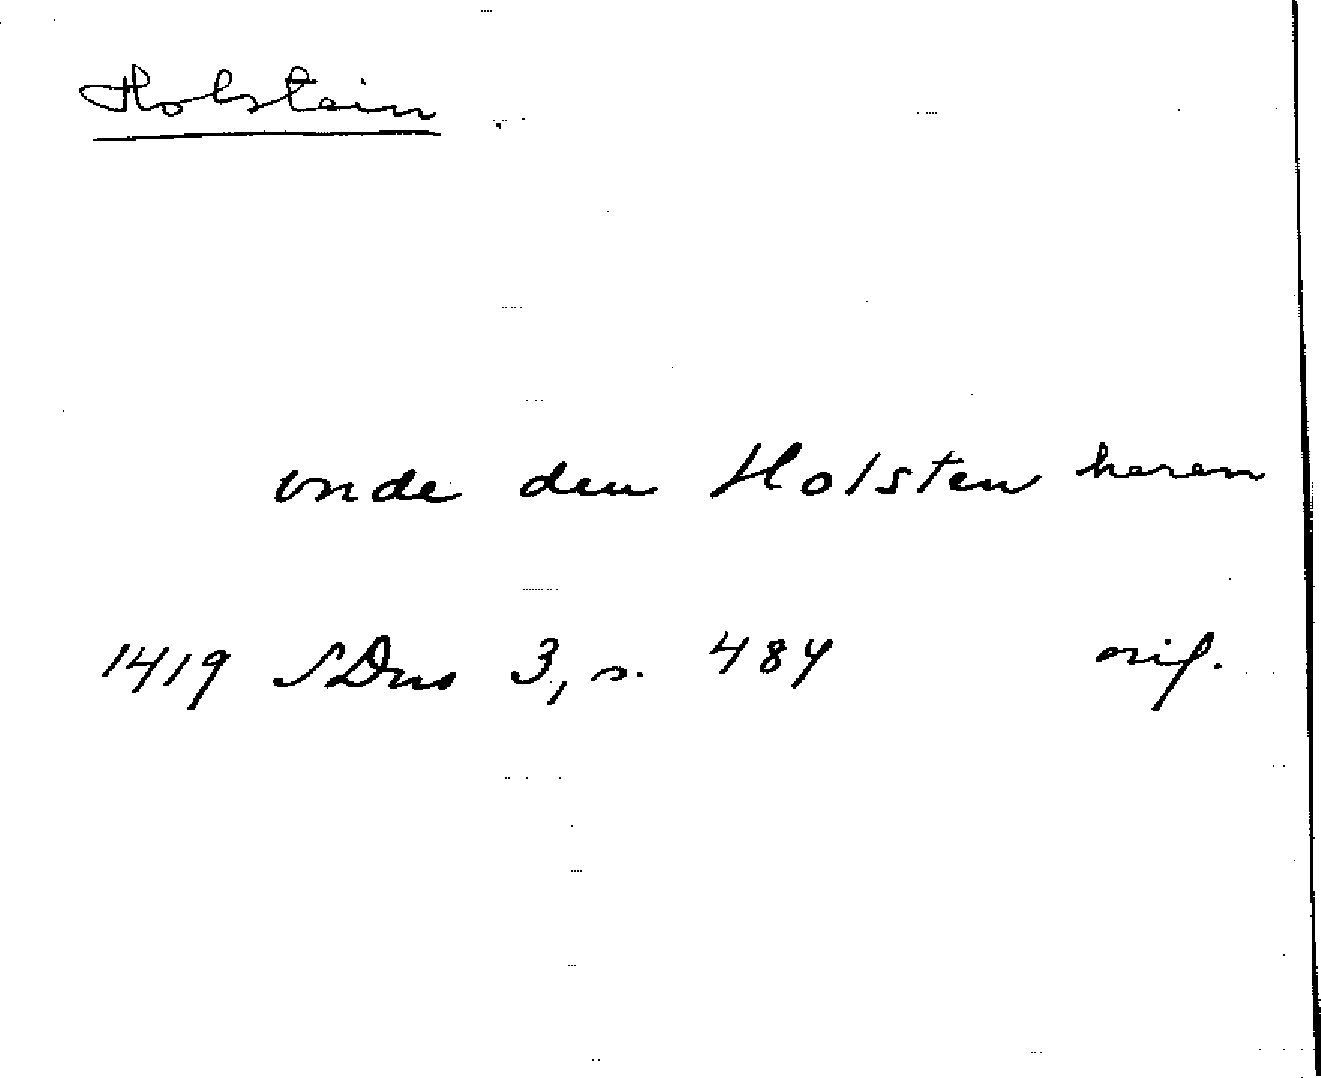 Holstein
vnde den Holsten heren
1419 SDns 3, s. 484 orig.